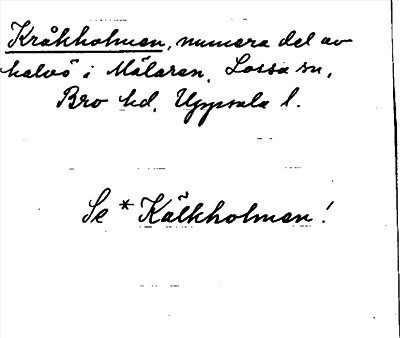 Kråkholmen, numera del av
halvö i Mälaren, Lossa sn,
Bro hd, Uppsala l.
Se *Kålkholmen!